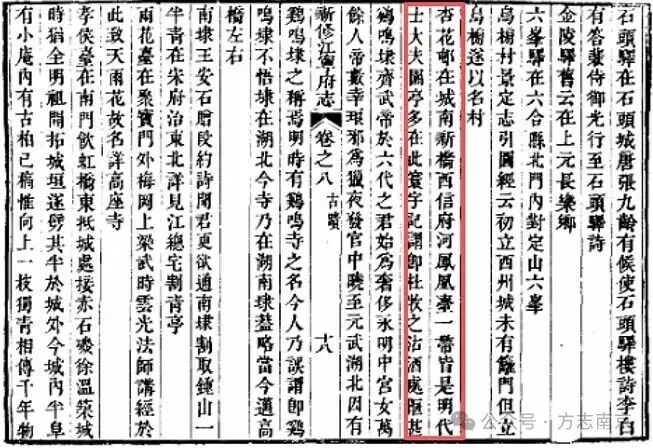 石頭驛在石頭城唐張九齡有候使石頭驛樓詩李白
有答裴侍御光行至石頭驛詩
金陵驛舊云在上元長樂鄉
六峯驛在六合縣北門內對定山六峯
烏榜村景定志引圖經云初立西州城未有籬門但立
烏榜遂以名村
杏花邨在城南新橋西信府河鳳凰臺一帶皆是明代
士大夫園亭多在此寰宇記謂卽杜牧之沽酒處甚
鷄鳴埭齊武帝於六代之君始爲奢侈永明中宮女萬
餘人帝數幸琅邪爲獵夜發宮中曉至元武湖北因有
新修江寧府志 卷之八 古蹟 十八
鷄鳴埭之稱焉明時有鷄鳴寺之名今人乃誤謂卽鷄
鳴埭不悟埭在湖北今寺乃在湖南埭葢略當今邁高
橋左右
南埭王安石贈段約詩聞君更欲通南埭割取鍾山一
半青在宋府治東北詳見江總宅割青亭
雨花臺在聚寶門外梅岡上梁武時雲光法師講經於
此致天雨花故名詳高座寺
孝侯臺在南門飲虹橋東抵城處接赤石磯徐溫築城
時猶全明祖開拓城垣遂劈其半於城外今城內半阜
有小庵內有古柏已稿惟向上一枝獨青相傳千年物
公众号·方志南京